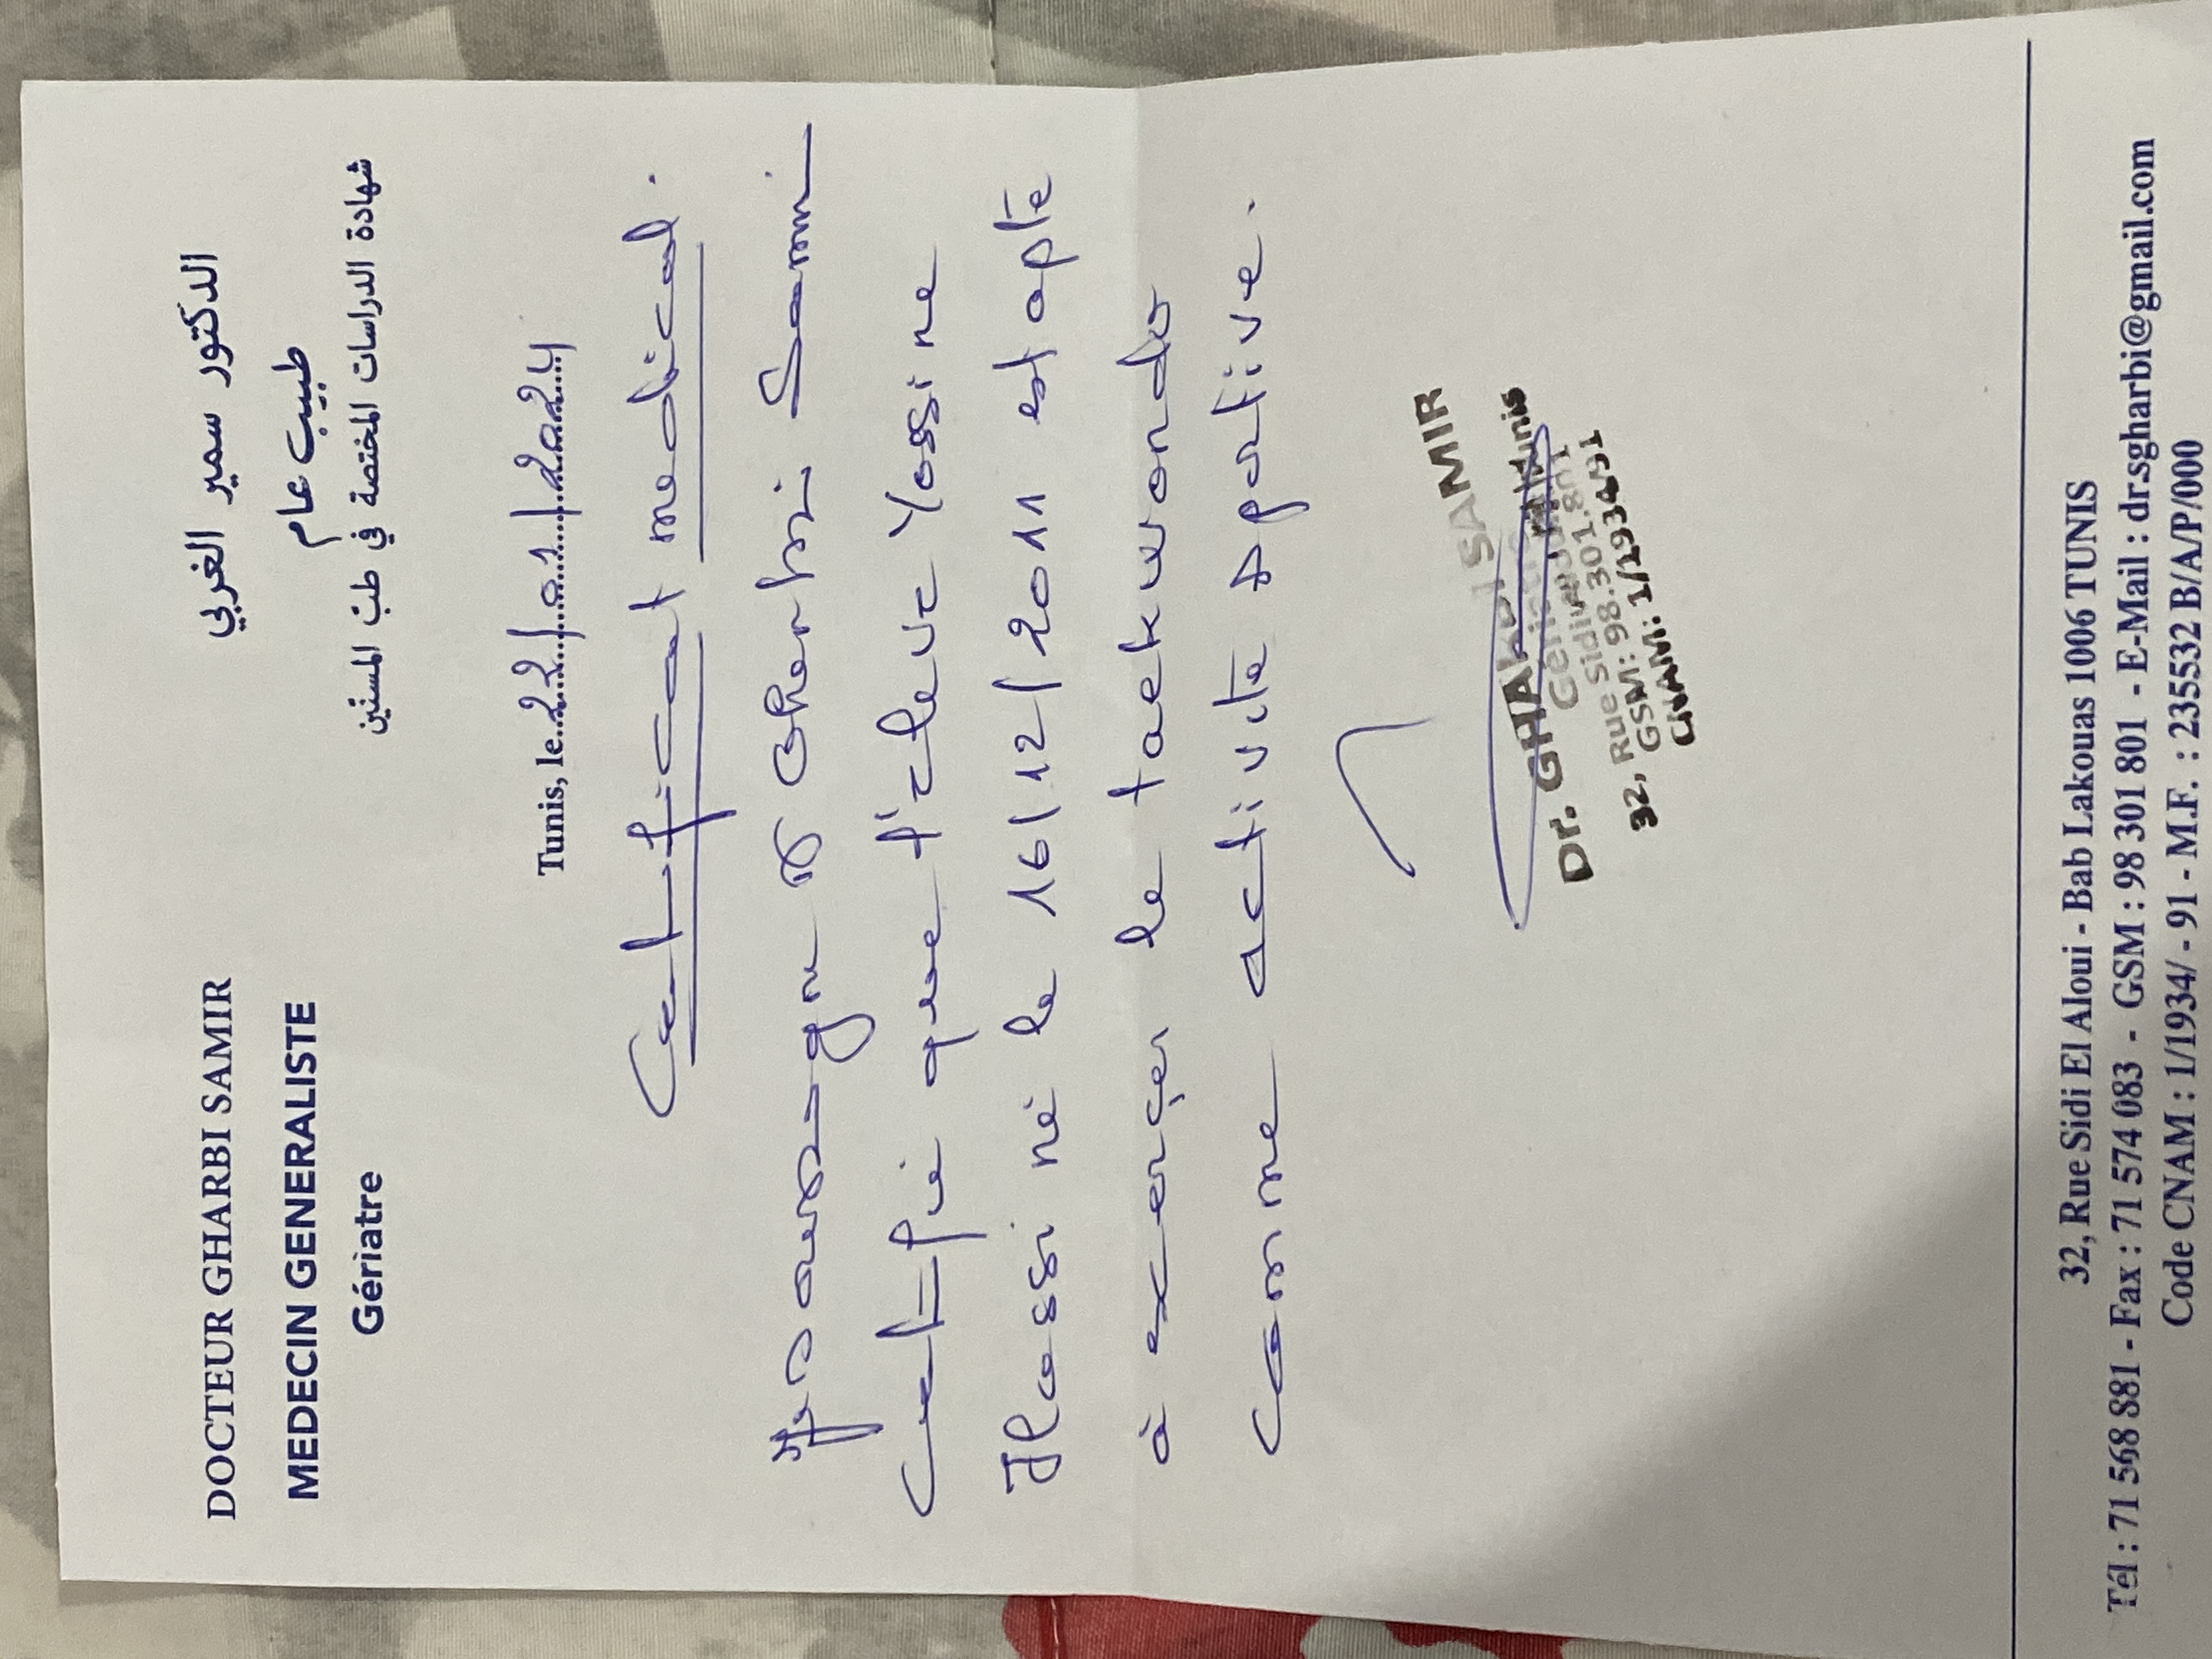 DOCTEUR GHARBI SAMIR
MEDECIN GENERALISTE
Gériatre
الدكتور سمير الغربي
طبيب عام
شهادة الدراسات المختصة في طب المسنين
Tunis, le 22/01/2024
Certificat medical.
Je soussigné Dr Gharbi Samir
Certifié que l'éleve Yassine
né le 16/12/2011 est apte
à exerçer le taekwondo
comme activité sportive.
Dr. GHARBI SAMIR
32, Rue Sidi
GSM: 98.301.801
CNAM: 1/1934/91
32, Rue Sidi El Aloui - Bab Lakouas 1006 TUNIS
Tél : 71 568 881 - Fax : 71 574 083 - GSM : 98 301 801 - E-Mail : dr.sgharbi@gmail.com
Code CNAM : 1/1934/ - 91 - M.F. : 235532 B/A/P/000